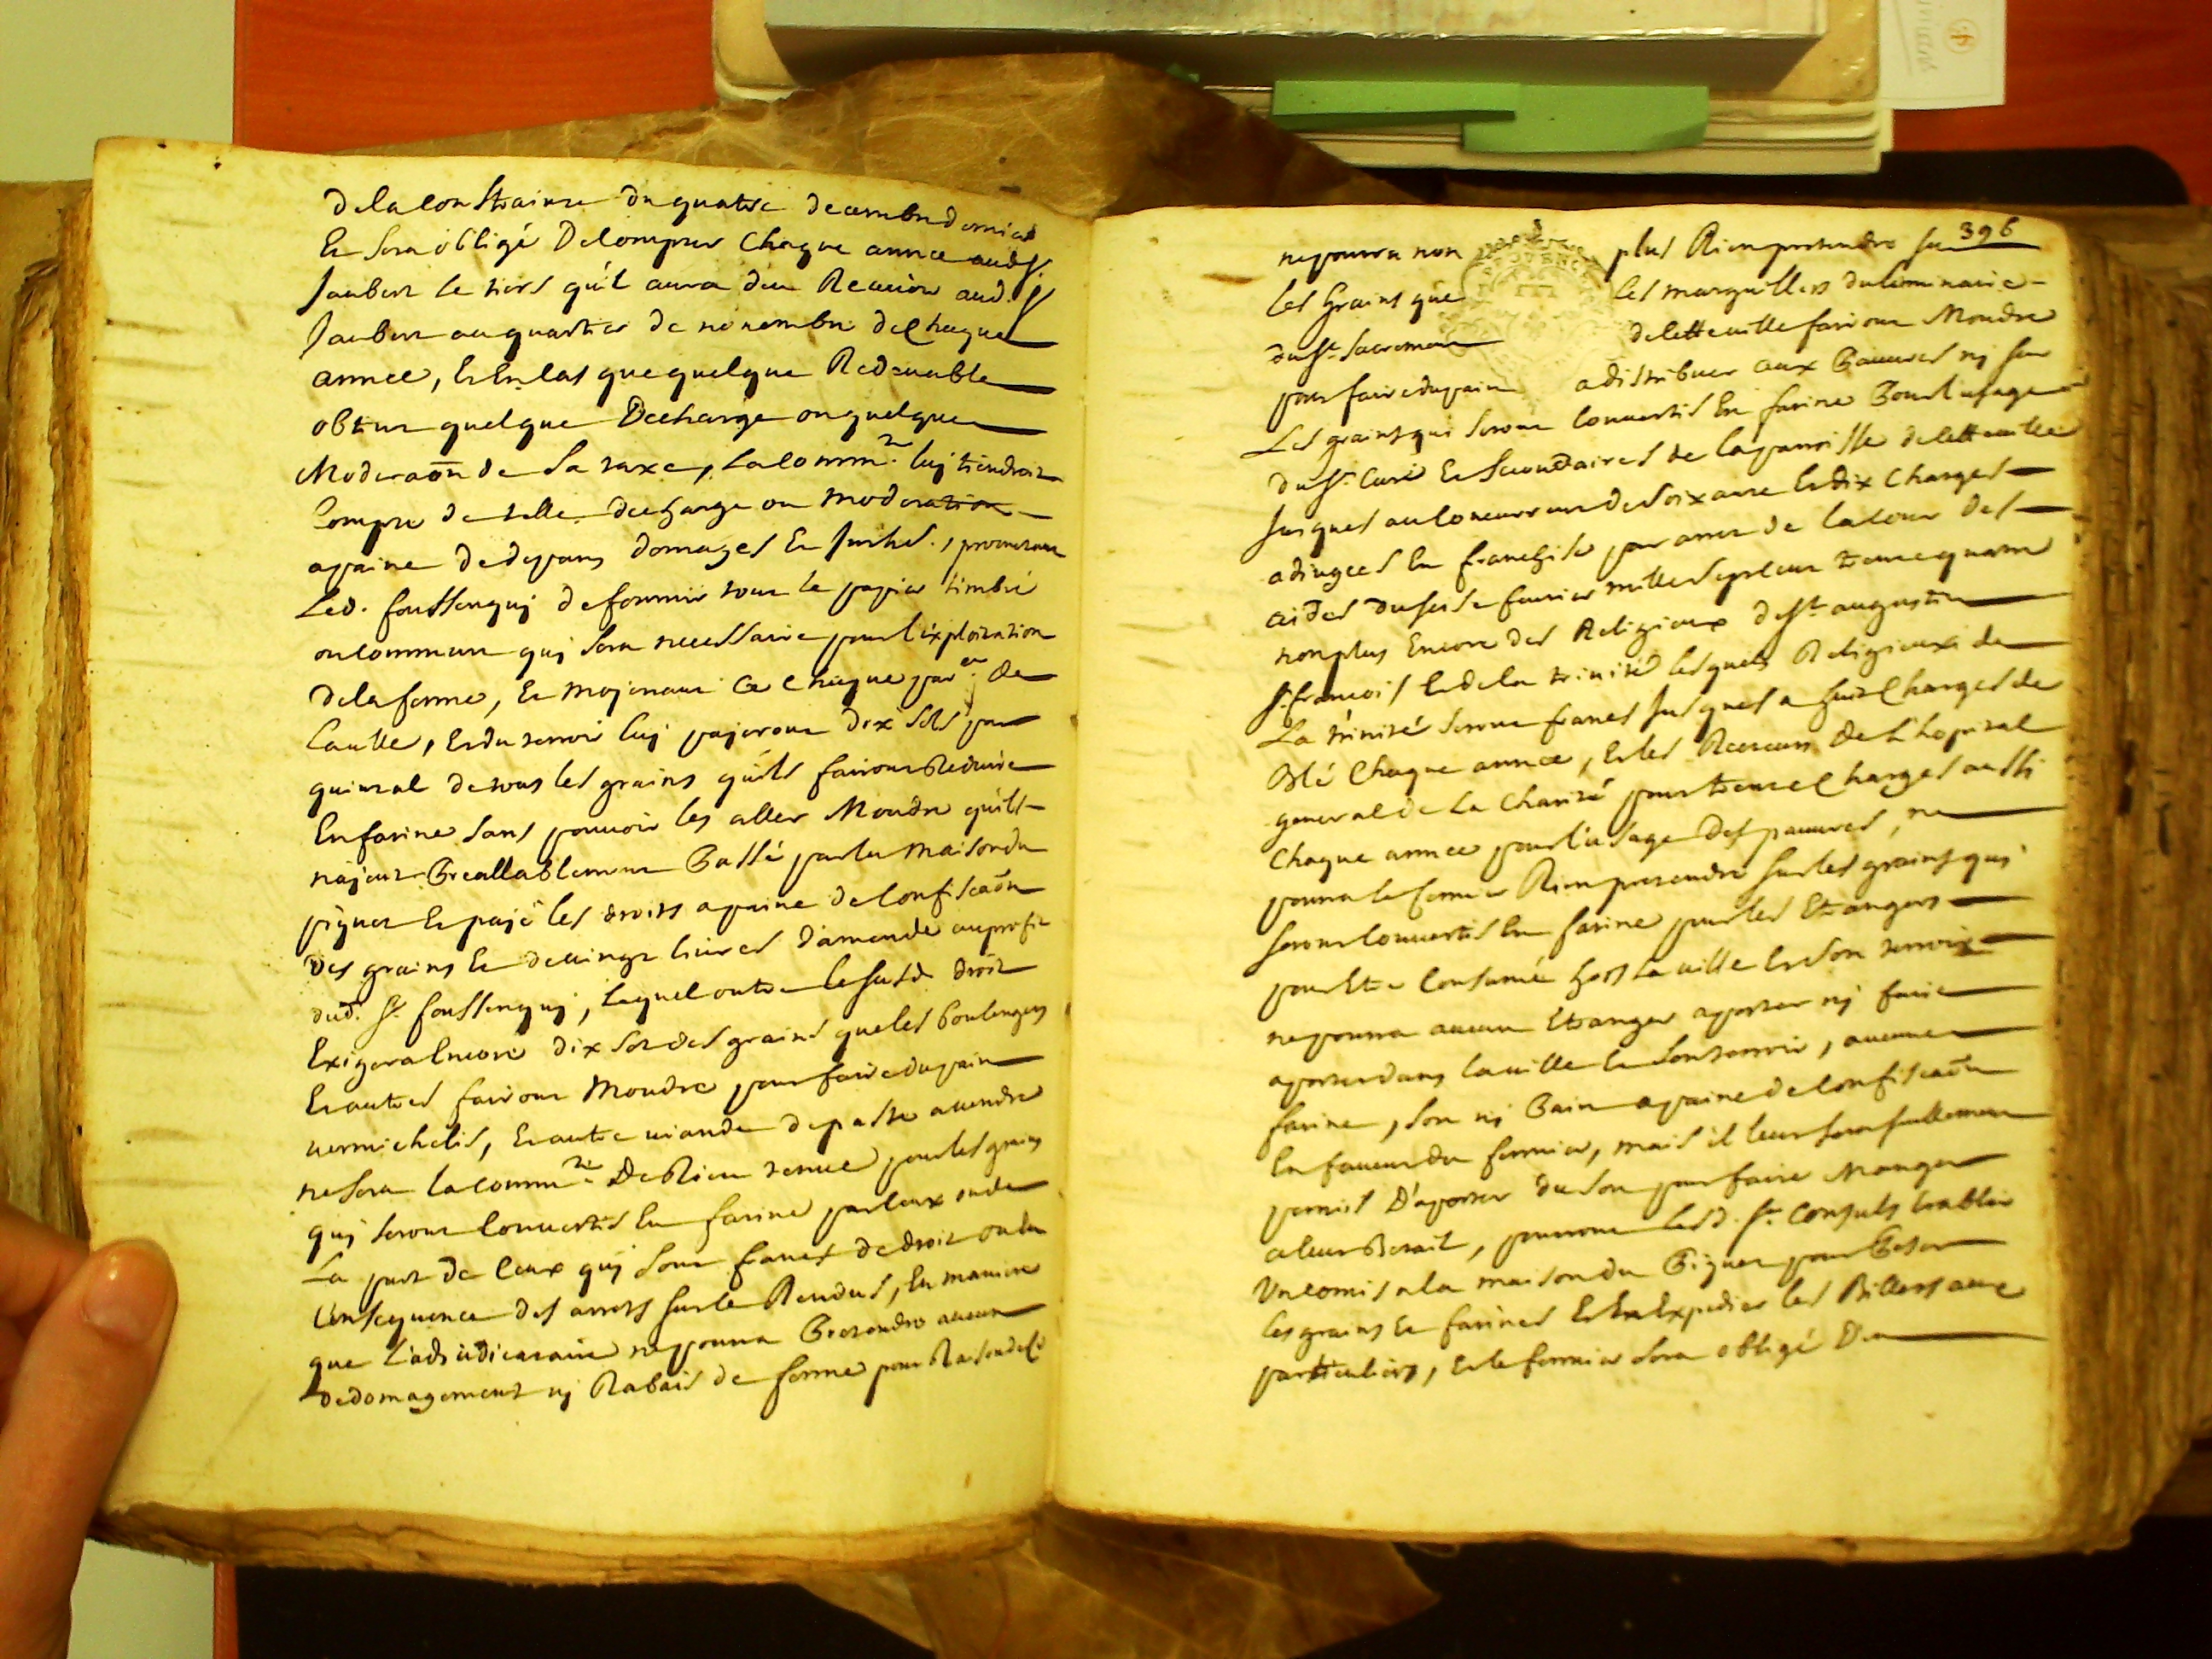 de la contrainte du quatre decembre dernier
Et sera obligé De Compter Chaque année aud Sr.
Jaubert le tiers qu'il aura deu Recevoir aud. Sr
Jaubert au quartier de novembre de Chaque
année, Et En Cas que quelque Redevable
obtint quelque Decharge ou quelque
Moderaōn de Sa taxe, La Commté. luy tiendroit
Compte de telle decharge ou moderation
a paine de depans domages Et Inthes.,
Led. foussenquy de fournir tout le papier timbré
ou Commun quy Sera necessaire pour l'exploitation
de la ferme, Et mojenant Ce Chaque par.er de
la ville, Et du terroir luy pajeront dix Sols par
quintal de tous les grains quils fairont Reduire
En farine Sans pouvoir les aller Moudre quils
n'ajent Preallablement Passé par la maison du
piquet Et pajé les droits a paine de Confiscaōn
Des grains Et de vingt livres d'amende au profit
dud. Sr. foussenquy, lequel outre le Susd. droit
Exigera Encore dix Sol des grains que les boulengers
Et autres fairont Moudre pour faire du pain
vermichelis, Et autre viande de paste a vendre
ne Sera la Commté De Rien tenue pour les grains
quy Seront Convertis En farine par Ceux ou de
La part de Ceux quy Sont francs de droit ou En
Consequence des arrets Sur Ce Rendus, En maniere
que L'adjudicataire ne pourra Pretendre aucun
dedomagement ny Rabais de ferme pour Raison de Ce
396
ne pourra non plus Rien pretendre Sur
les Grains que les marguilliers du luminaire
du St. Sacrement de Cette ville fairont Moudre
pour faire du pain a distribuer aux Pauvres ny Sur
Les grains qui Seront Convertis En farine Pour l'usage
du Sr. Curé Et Secondaires de la parroisse de Cette ville
Jusques au Concurrant de Soixante Et dix Charges
adjugées En franchise par arret de la Cour des
aides du Seise fevrier mille Sept Cent trente quatre
non plus Encore des Religieux de St. augustin
St. francois Et de la trinité lesquels Religieux de
La trinité Seront francs Jusques a huit Charges de
Blé Chaque année, Et les Recteurs de L'hopital
general de La Charité pour trente Charges aussi
Chaque année pour l'usage des pauvres, ne
pourra le fermier Rien pretendre Sur les grains quy
Seront Convertis En farine pour les Etrangers
pour Etre Consumé hors La ville Et Son terroir
ne pourra aucun Etranger aporter ny faire
aporter dans la ville Et Son terroir, aucune
farine, Son ny Pain a paine de Confiscaōn
En faveur du fermier, mais il leur Sera Seullement
permis D'aporter du Son pour faire Manger
a leur Betail, pourront lesd. Srs. Consuls Etablir
Un Comis a la maison du Piquet pour Peser
les grains Et farines Et En Expedier les Billets aux
particuliers, Et le fermier Sera obligé D'en